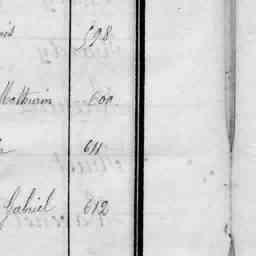 598
Mathurin 609
611
Gabriel 612